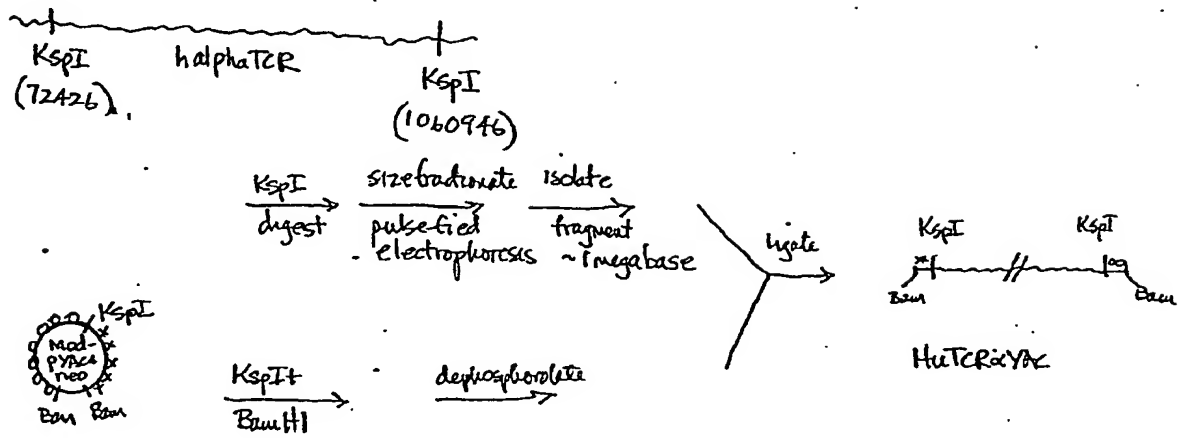 KspI
halphaTCR
KspI
(72426)
(1060946)
KspI
digest
sizefractionate
pulse-field
electrophoresis
isolate
fragment
~1megabase
ligate
KspI
KspI
Bam
Bam
HuTCRαYAC
KspI
Mod-
pYAC4
neo
Bam
Bam
KspI+
BamHI
dephosphorolate